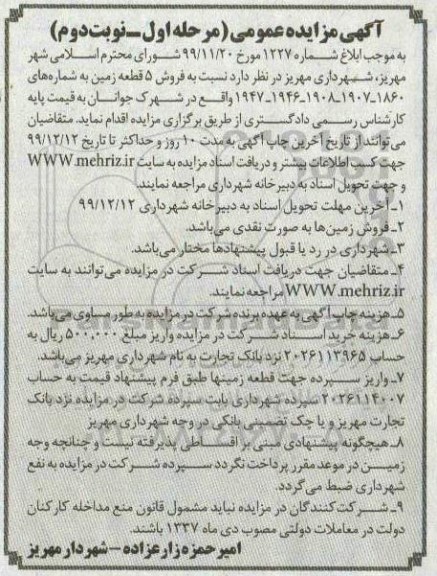 آگهی مزایده عمومی (مرحله اول ـ نوبت دوم)
به موجب ابلاغ شماره ۱۲۲۷ مورخ ۹۹/۱۱/۲۰ شورای محترم اسلامی شهر
مهریز، شهرداری مهریز در نظر دارد نسبت به فروش ۵ قطعه زمین به شماره‌های
۱۸۶۰ـ۱۹۰۷ـ۱۹۰۸ـ۱۹۴۶ـ۱۹۴۷ واقع در شهرک جوانان به قیمت پایه
کارشناس رسمی دادگستری از طریق برگزاری مزایده اقدام نماید. متقاضیان
می‌توانند از تاریخ آخرین چاپ آگهی به مدت ۱۰ روز و حداکثر تا تاریخ ۹۹/۱۲/۱۲
جهت کسب اطلاعات بیشتر و دریافت اسناد مزایده به سایت WWW.mehriz.ir
و جهت تحویل اسناد به دبیرخانه شهرداری مراجعه نمایند.
۱ـ آخرین مهلت تحویل اسناد به دبیرخانه شهرداری ۹۹/۱۲/۱۲
۲ـ فروش زمین‌ها به صورت نقدی می‌باشد.
۳ـ شهرداری در رد یا قبول پیشنهادها مختار می‌باشد.
۴ـ متقاضیان جهت دریافت اسناد شرکت در مزایده می‌توانند به سایت
WWW.mehriz.ir مراجعه نمایند.
۵ـ هزینه چاپ آگهی به عهده برنده شرکت در مزایده به طور مساوی می‌باشد.
۶ـ هزینه خرید اسناد شرکت در مزایده واریز مبلغ ۵۰۰,۰۰۰ ریال به
حساب ۲۰۲۶۱۱۳۹۶۵ نزد بانک تجارت به نام شهرداری مهریز می‌باشد.
۷ـ واریز سپرده جهت قطعه زمینها طبق فرم پیشنهاد قیمت به حساب
۲۰۲۶۱۱۴۰۰۷ سپرده شهرداری بابت سپرده شرکت در مزایده نزد بانک
تجارت مهریز و یا چک تضمینی بانکی در وجه شهرداری مهریز
۸ـ هیچگونه پیشنهادی مبنی بر اقساطی پذیرفته نیست و چنانچه وجه
زمین در موعد مقرر پرداخت نگردد سپرده شرکت در مزایده به نفع
شهرداری ضبط می‌گردد.
۹ـ شرکت‌کنندگان در مزایده نباید مشمول قانون منع مداخله کارکنان
دولت در معاملات دولتی مصوب دی ماه ۱۳۳۷ باشند.
امیرحمزه زارعزاده ـ شهردار مهریز